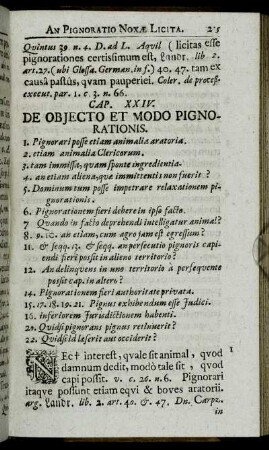 AN PIGNORATIO NOXÆ LICITA. 25
Quintus 39 n. 4. D. ad L. Aqvil (licitas esse
pignorationes certissimum est, Landr. lib 2.
art. 27. (ubi Glossa. German. in f.) 40. 47. tam ex
causâ pastûs, qvam pauperiei. Coler. de process.
execut. par. 1. c. 3. n. 66.
CAP. XXIV.
DE OBJECTO ET MODO PIGNO-
RATIONIS.
1. Pignorari posse etiam animalia aratoria.
2. etiam animalia Clericorum.
3. tam immissa, qvam sponte ingredientia.
4. an etiam aliena, qvæ immittentis non fueris?
5. Dominum tum posse impetrare relaxationem pi-
gnorationis.
6. Pignorationem fieri debere in ipso facto.
7 Quando in facto deprehendi intelligatur animal?
8. 9. 10. an etiam, cum agro jam est egressum?
11. & seqq. 13. & seqq. an persecutio pignoris capi-
endi fieri possit in alieno territorio?
12. An delinqvens in uno territorio à perseqvente
possit cap. in altero?
14. Pignorationem fieri authoritate privata.
15. 17. 18. 19. 21. Pignus exhibendum esse Judici.
16. inferiorem Jurisdictionem habenti.
20. Quid si pignorans pignus retinuerit?
22. Quid si læserit aut occiderit?
NEc† interest, qvale sit animal, qvod 1
damnum dedit, modò tale sit, qvod
capi possit. v. c. 26. n. 6. Pignorari
itaqve possunt etiam eqvi & boves aratorii.
arg. Landr. lib. 2. art. 40. & 47. Dn. Carpz.
in